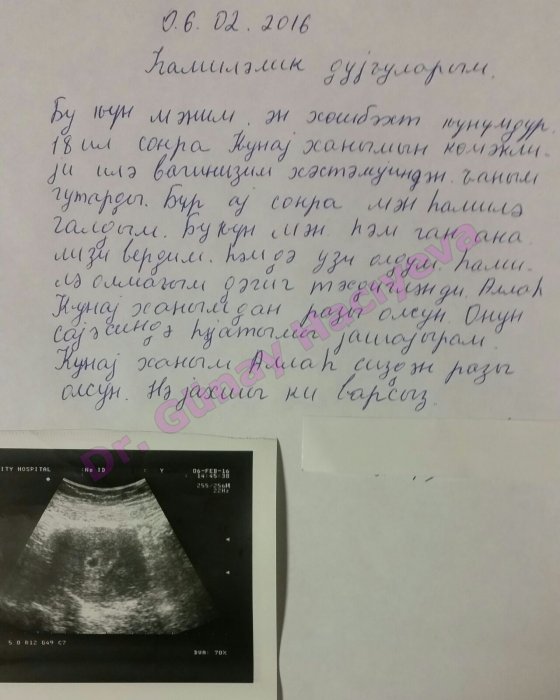 06.02.2016
Һамиләлик дујғуларым.
Бу ҝүн мәним ән хошбәхт ҝүнүмдүр.
18 ил сонра Күнај ханымын көмәкли-
ји илә вагинизим хәстәлијиндән ҹаным
гутарды. Бир ај сонра мән һамилә
галдым. Бу ҝүн мән һәм ган ана
лизи вердим. Һәмдә узи олдум. Һами-
лә олмағым дәгиг тәсдигләнди. Аллаһ
Күнај ханымдан разы олсун. Онун
сајәсиндә һәјатымы јашајырам.
Күнај ханым Аллаһ сиздән разы
олсун. Нә јахшы ки варсыз.
Dr. Günay Hacıyeva
ITY HOSPITAL :No ID : Y 06-FEB-16
14:45:38
255/256M
22Hz
5.0 R12 G49 C7
DVA: 70%